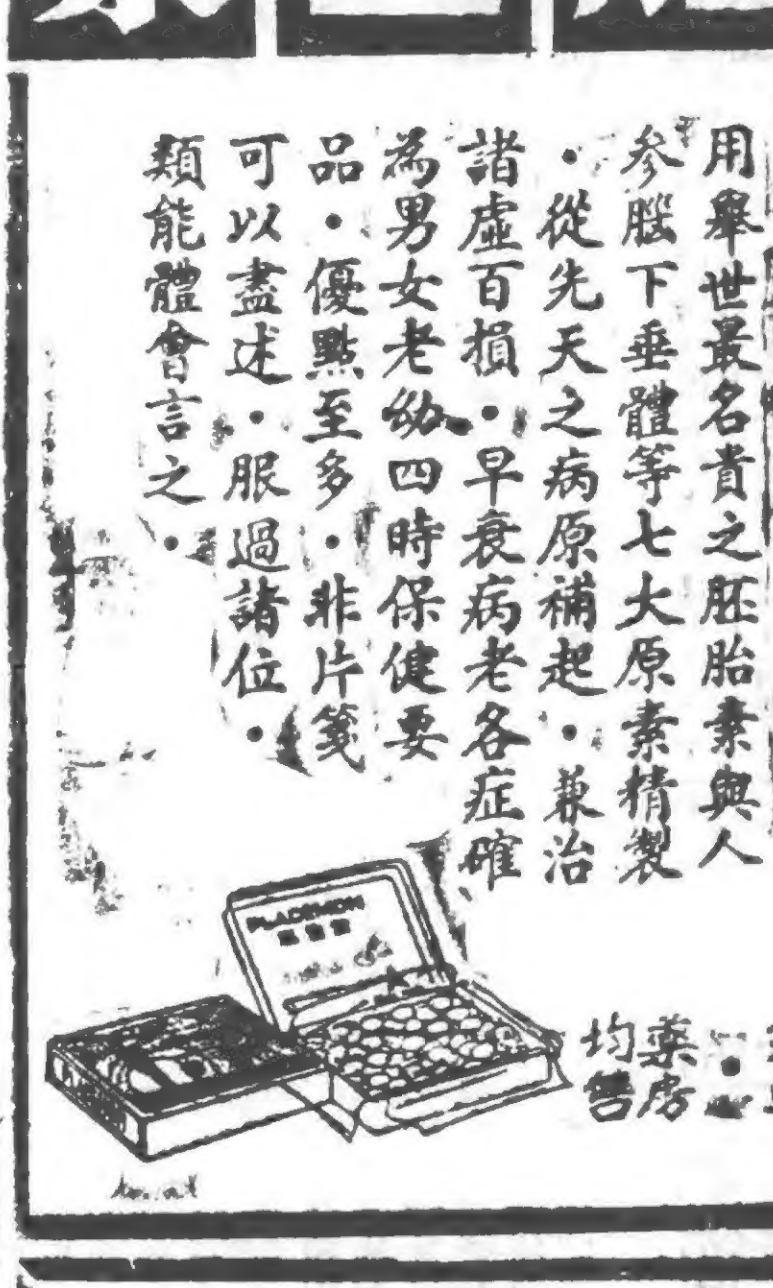 用舉世最名貴之胚胎素與人
參腦下垂體等七大原素精製
・從先天之病原補起・兼治
諸虛百損・早衰病老各症確
為男女老幼四時保健要
品・優點至多・非片箋
可以盡述・服過諸位・
類能體會言之・
藥房
均售
PLADEMON